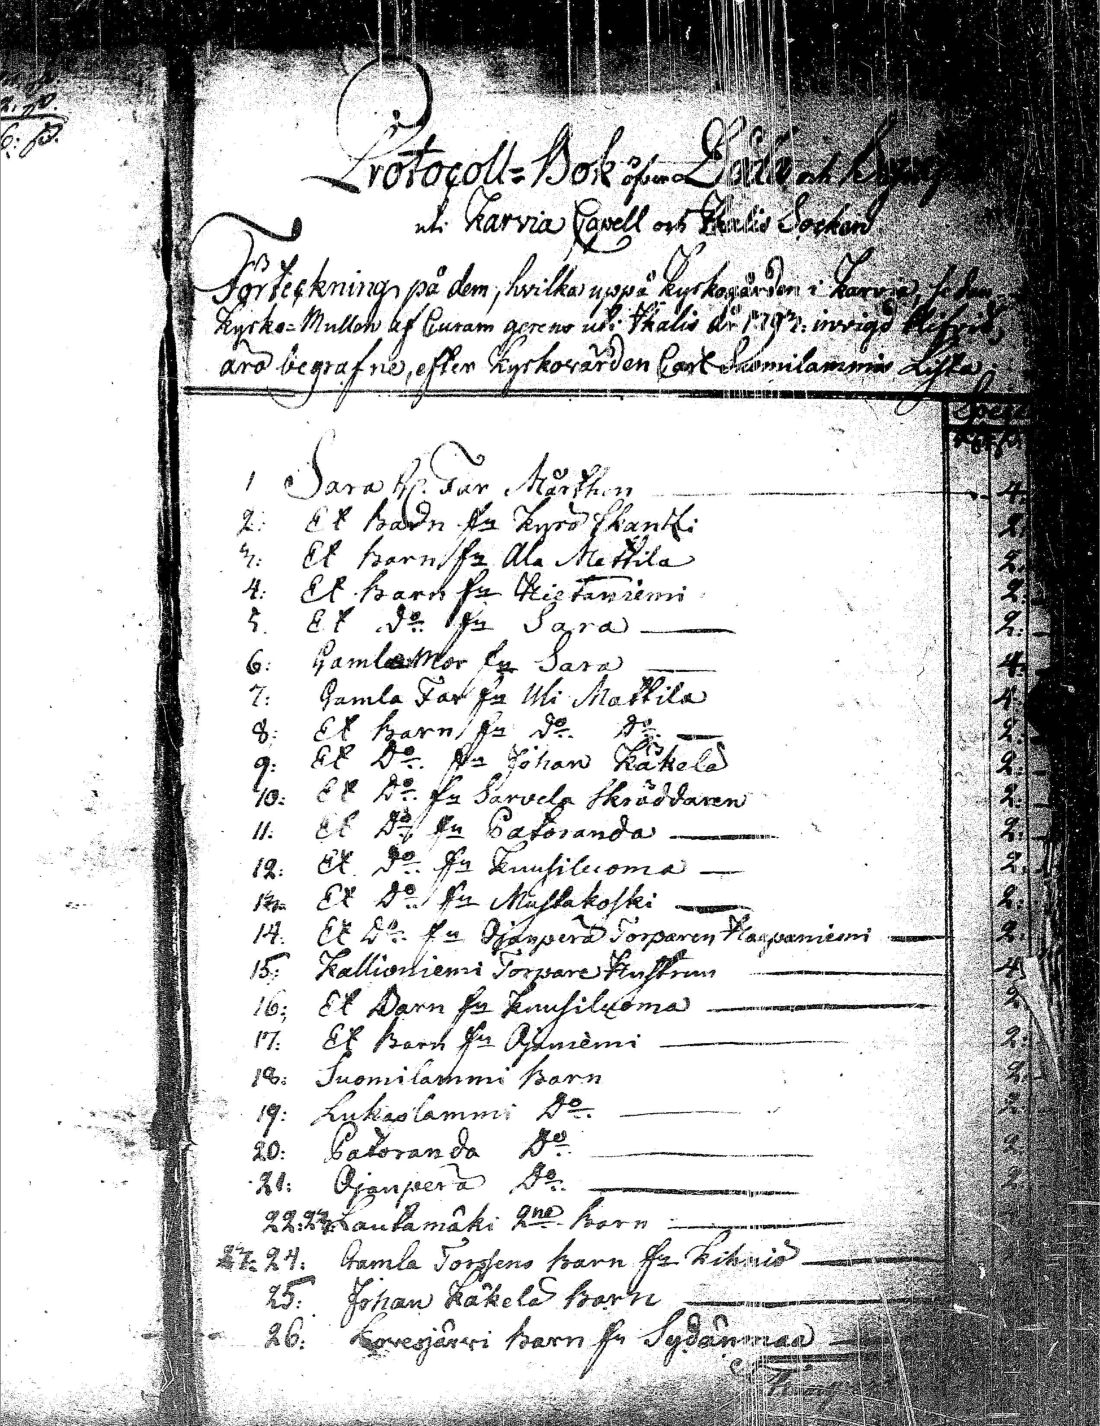 Protocoll-Bok öfver Döda och
uti Karvia Capell och Ikalis Sochen
Förteckning på dem, hvilka uppå Kyrkogården i Karvia, sedan
Kyrko-Mullen af Curam gerens uti Ikalis år 1793: invigd blifvit,
äro begrafne, efter Kyrkovärden Carl Suomilammis Lista
1 Sara Far Mårthen 4.
2: Et Barn fr. Kyrö Skantzi 2:
3: Et Barn fr. Ala Mattila 2.
4: Et Barn fr. Hietaniemi 2:
5. Et Do: fr. Sara 2:
6: Gamla Mor fr. Sara 4:
7: Gamla Far fr. Uli Mattila 4:
8: Et Barn fr. Do: Do: 2:
9: Et Do: fr. Johan Käkelä 2:
10: Et Do: fr. Sarvela Skräddaren 2:
11: Et Do: fr. Patoranda 2:
12: Et Do: fr. Kuusiluoma 2.
13: Et Do: fr. Mustakoski 2:
14: Et Do: fr. Ojanperä Torparen Haapaniemi 2:
15: Kallioniemi Torpare Hustrun 4
16: Et Barn fr. Kuusiluoma 2
17: Et Barn fr. Ojaniemi 2:
18: Suomilammi Barn 2:
19: Lukaslammi Do: 2:
20: Patoranda Do: 2
21: Ojanperä Do: 2
22:23: Lautamäki 2ne Barn
24: Gamla Torssens Barn fr. Kihniö
25: Johan Käkelä Barn
26: Kovesjärvi Barn fr. Sydänmaa